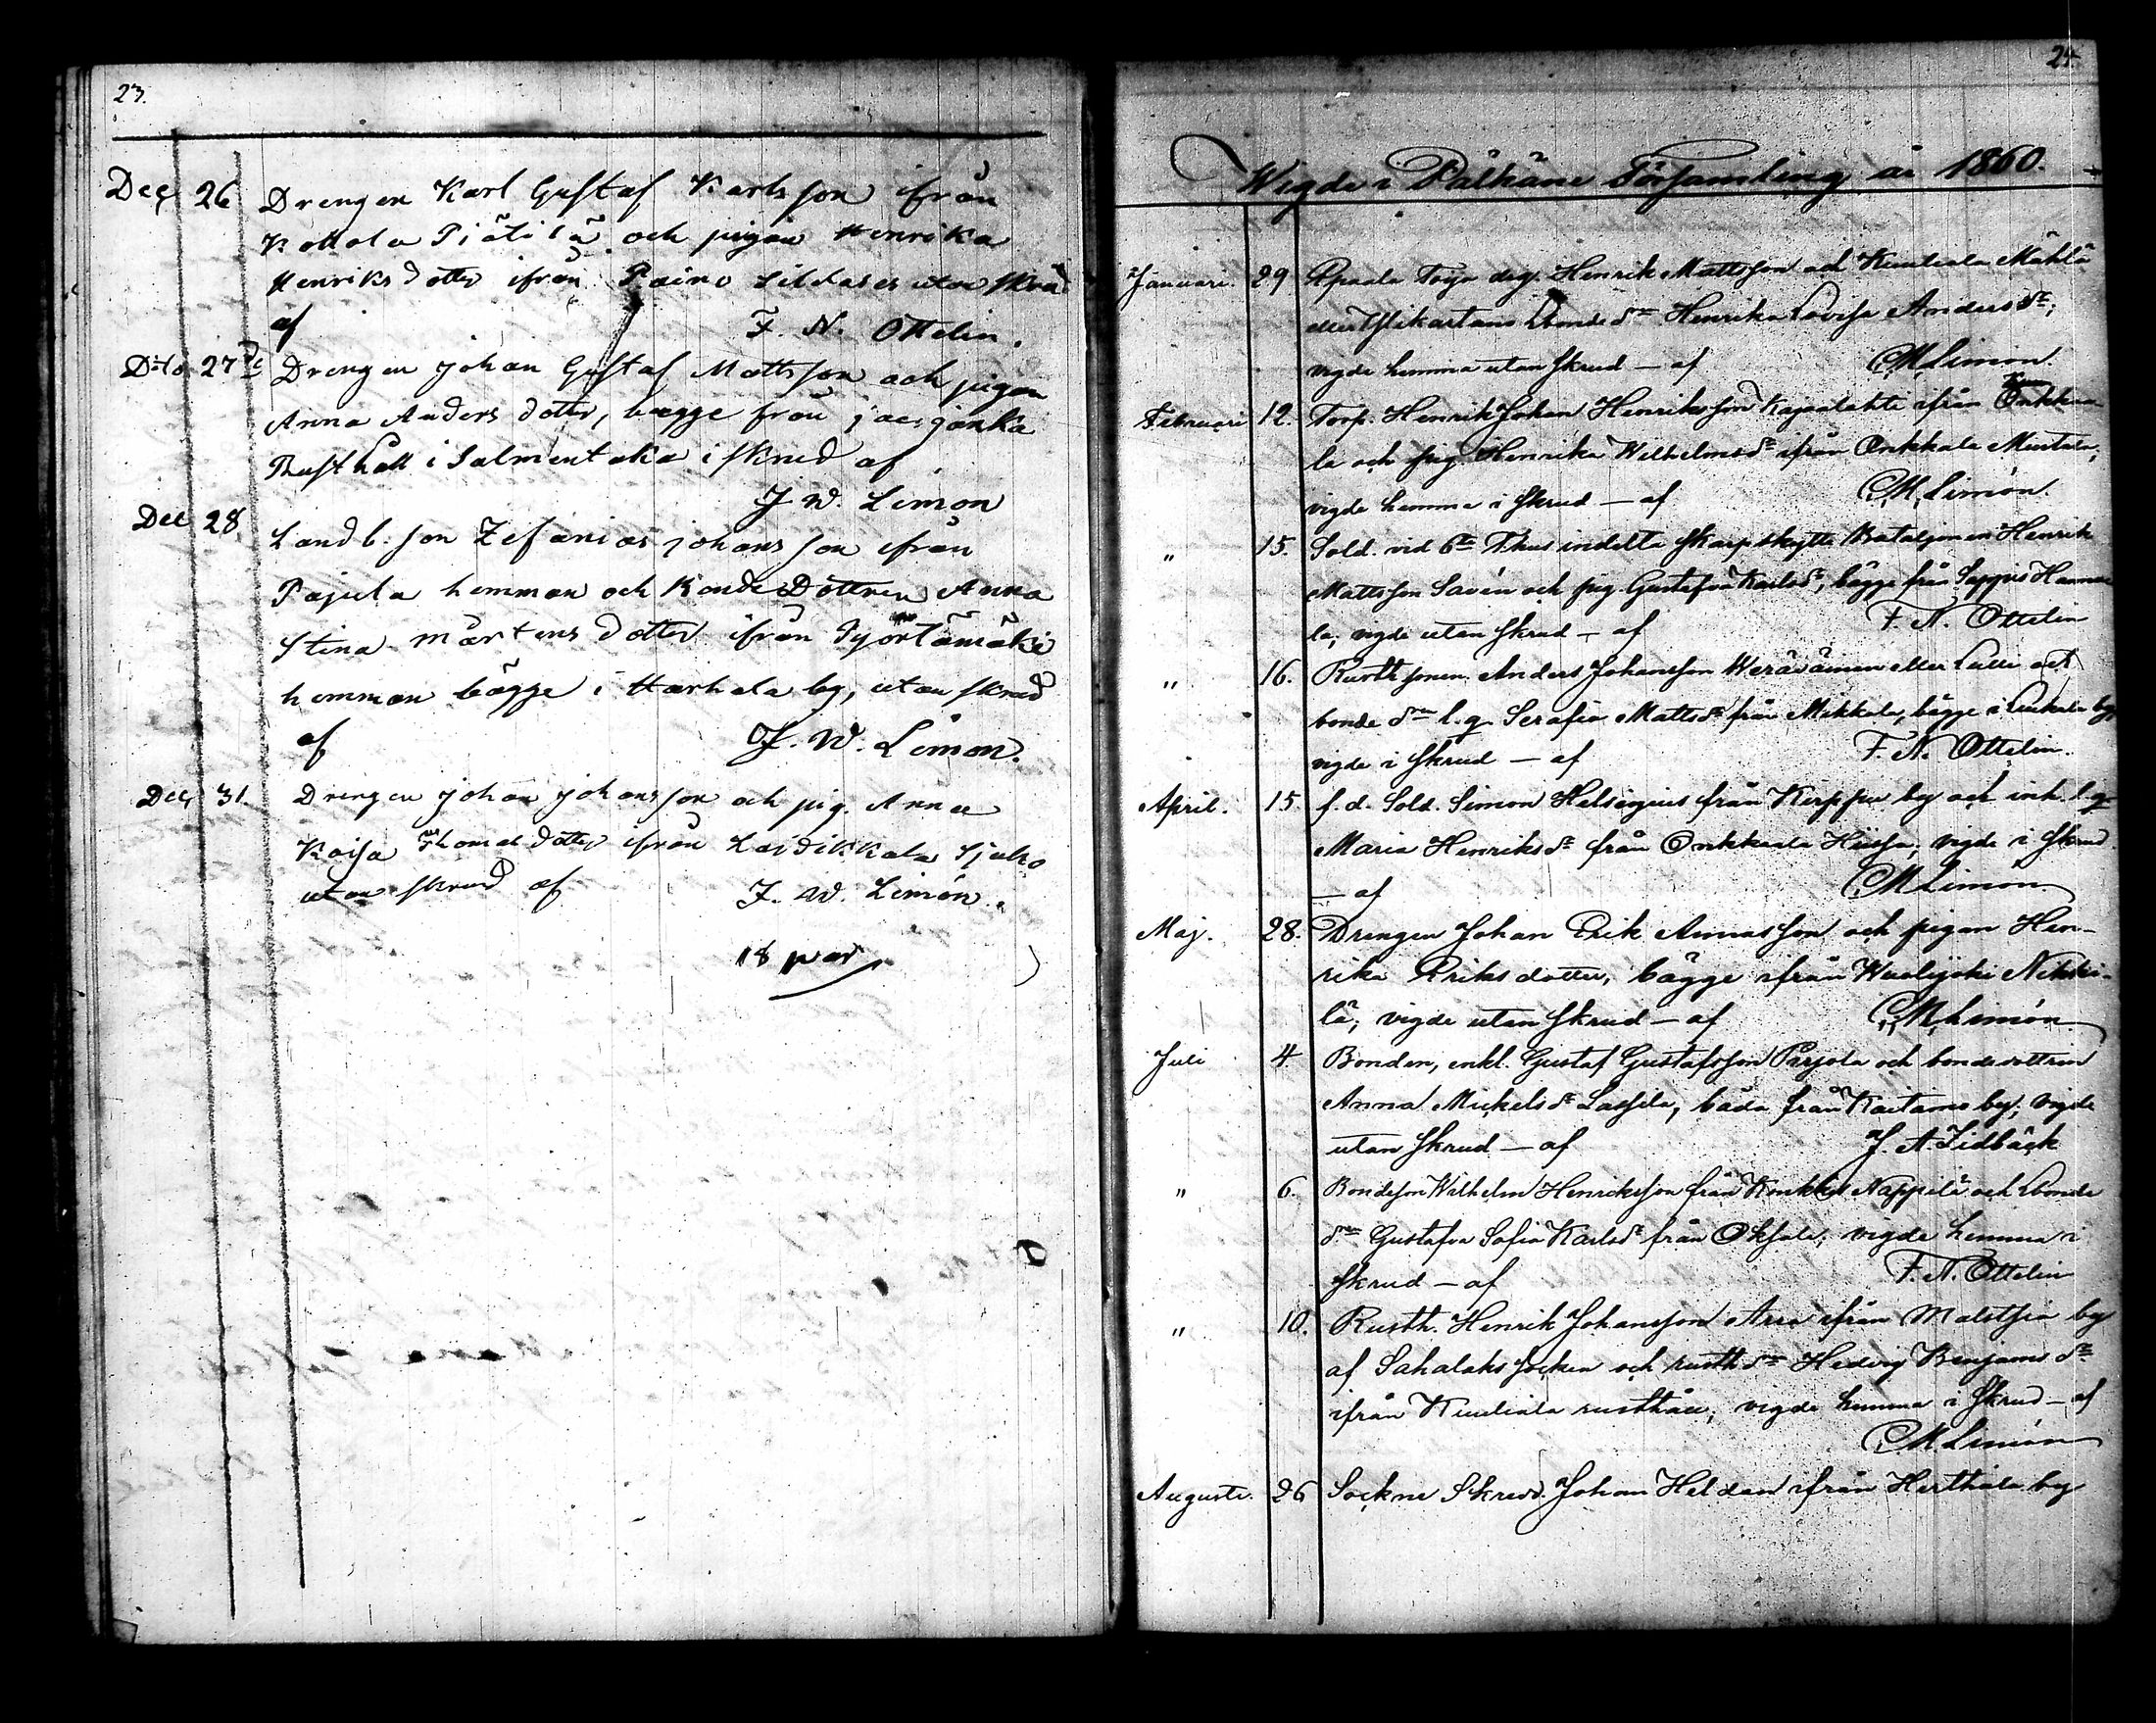 23.
Dec 26 Drengen Karl Gustaf Karlsson ifrån
Kollola Pjätilä och pigan Henrika
Henriks dotter ifrån Paino utan skrud
af F. N. Ottelin.
Dito 27de Drengen Johan Gustaf Mattsson och pigan
Anna Anders dotter, bägge från
Rusthåll i Salmentaka i skrud af
J. W. Limon
Dec 28 Landb. son Zefanias Johansson ifrån
Pajula hemman och Bonde Dottren Anna
Stina Mårtens dotter ifrån
hemman bägge i Harhala by, utan skrud
af J. W. Limon.
Dec 31. Drengen Johan Johansson och pig. Anna
Kaisa Thomas dotter ifrån Laidikkala
utan skrud af J. W. Limón.
18 par
24.
Wigde i Pälkäne Församling år 1860.
Januari. 29 drg. Henrik Mattsson och Kuuliala Mähkä
eller bonde dn Henrika Lovisa Anders dr;
vigde hemma utan skrud — af C. M. Limón.
Februari 12. Torp. Henrik Johan Henriksson Kajaalahti ifrån Onkka-
la och pig. Henrika Wilhelms dr ifrån Onkkala Mustala;
vigde hemma i skrud — af C. M. Limón.
" 15. Sold. vid 6te indelta skarpskytte Bataljonen Henrik
Mattsson Savén och pig. Gustafva Karls dr, bägge från Sappis Hanna-
la; vigde utan skrud — af F. N. Ottelin
" 16. Rusth. sonen Anders Johansson eller Lulli och
bonde dn l. q. Serafia Matts dr från Mikkola, bägge i by,
vigde i skrud — af F. N. Ottelin.
April. 15. f. d. Sold. Simon Helsingius från Kirppu by och inh. l. q.
Maria Henriks dr från Onkkaala vigde i skrud
— af C. M. Limón
Maj. 28. Drengen Johan Erik Annasson och pigan Hen-
rika Eriks dotter, bägge ifrån Wuolijoki Nikki-
lä; vigde utan skrud — af C. M. Limón
Juli 4 Bonden, enkl. Gustaf Gustafsson Parjola och bondedottren
Anna Mickels dr Lassila, båda från Kaitamo by; vigde
utan skrud — af J. A. Zidbäck
" 6. Bondeson Wilhelm Henriksson från Nappilä och bonde
dn Gustafva Sofia Karls dr från vigde hemma i
skrud — af F. N. Ottelin
" 10. Rusth. Henrik Johansson ifrån by
af Sahalaks socken och rusth. dn Hedvig Benjams dr
ifrån Kuuliala rusthåll; vigde hemma i skrud — af
C. M. Limón
Augusti. 26 Sockne Skredd. Johan Heldan ifrån by